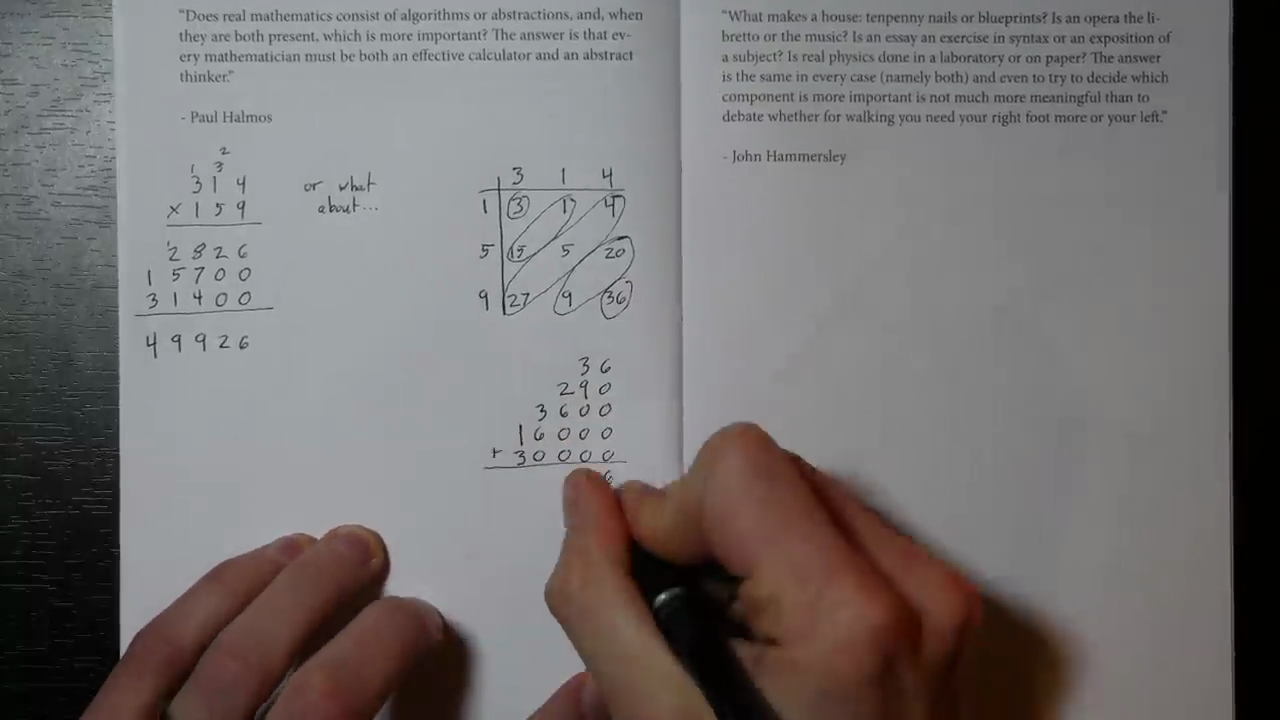 “Does real mathematics consist of algorithms or abstractions, and, when
they are both present, which is more important? The answer is that ev-
ery mathematician must be both an effective calculator and an abstract
thinker.”
- Paul Halmos
2
1 3
3 1 4
× 1 5 9
1
2 8 2 6
1 5 7 0 0
3 1 4 0 0
4 9 9 2 6
or what
about...
3 1 4
1 3 1 4
5 15 5 20
9 27 9 36
3 6
2 9 0
3 6 0 0
1 6 0 0 0
+ 3 0 0 0 0
6
“What makes a house: tenpenny nails or blueprints? Is an opera the li-
bretto or the music? Is an essay an exercise in syntax or an exposition of
a subject? Is real physics done in a laboratory or on paper? The answer
is the same in every case (namely both) and even to try to decide which
component is more important is not much more meaningful than to
debate whether for walking you need your right foot more or your left.”
- John Hammersley